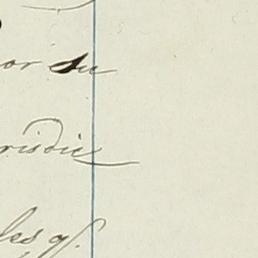 or su
risdic
les gf.